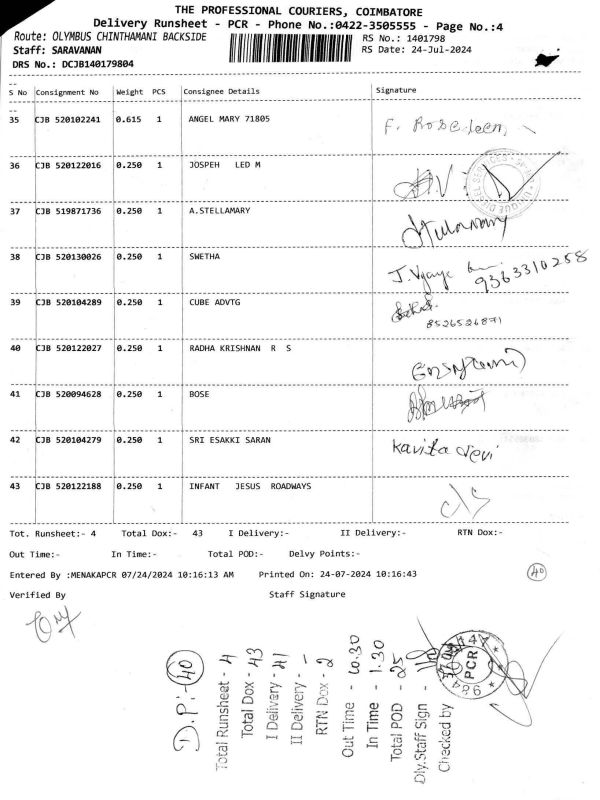 THE PROFESSIONAL COURIERS, COIMBATORE
Delivery Runsheet - PCR - Phone No.:0422-3505555 - Page No.:4
Route: OLYMBUS CHINTHAMANI BACKSIDE RS No.: 1401798
Staff: SARAVANAN RS Date: 24-Jul-2024
DRS No.: DCJB140179804
S No Consignment No Weight PCS Consignee Details Signature
35 CJB 520102241 0.615 1 ANGEL MARY 71805 F. Roseleen
36 CJB 520122016 0.250 1 JOSPEH LED M
37 CJB 519871736 0.250 1 A.STELLAMARY
38 CJB 520130026 0.250 1 SWETHA J. Vijaya 9363310258
39 CJB 520104289 0.250 1 CUBE ADVTG 8526526871
40 CJB 520122027 0.250 1 RADHA KRISHNAN R S
41 CJB 520094628 0.250 1 BOSE
42 CJB 520104279 0.250 1 SRI ESAKKI SARAN Kavita devi
43 CJB 520122188 0.250 1 INFANT JESUS ROADWAYS
Tot. Runsheet:- 4 Total Dox:- 43 I Delivery:- II Delivery:- RTN Dox:-
Out Time:- In Time:- Total POD:- Delvy Points:-
Entered By :MENAKAPCR 07/24/2024 10:16:13 AM Printed On: 24-07-2024 10:16:43 40
Verified By Staff Signature
D.P:- 40
Total Runsheet - 4
Total Dox - 43
I Delivery - 41
II Delivery - -
RTN Dox - 2
Out Time - 10.30
In Time - 1.30
Total POD - 25
Dly.Staff Sign -
Checked by
PCR